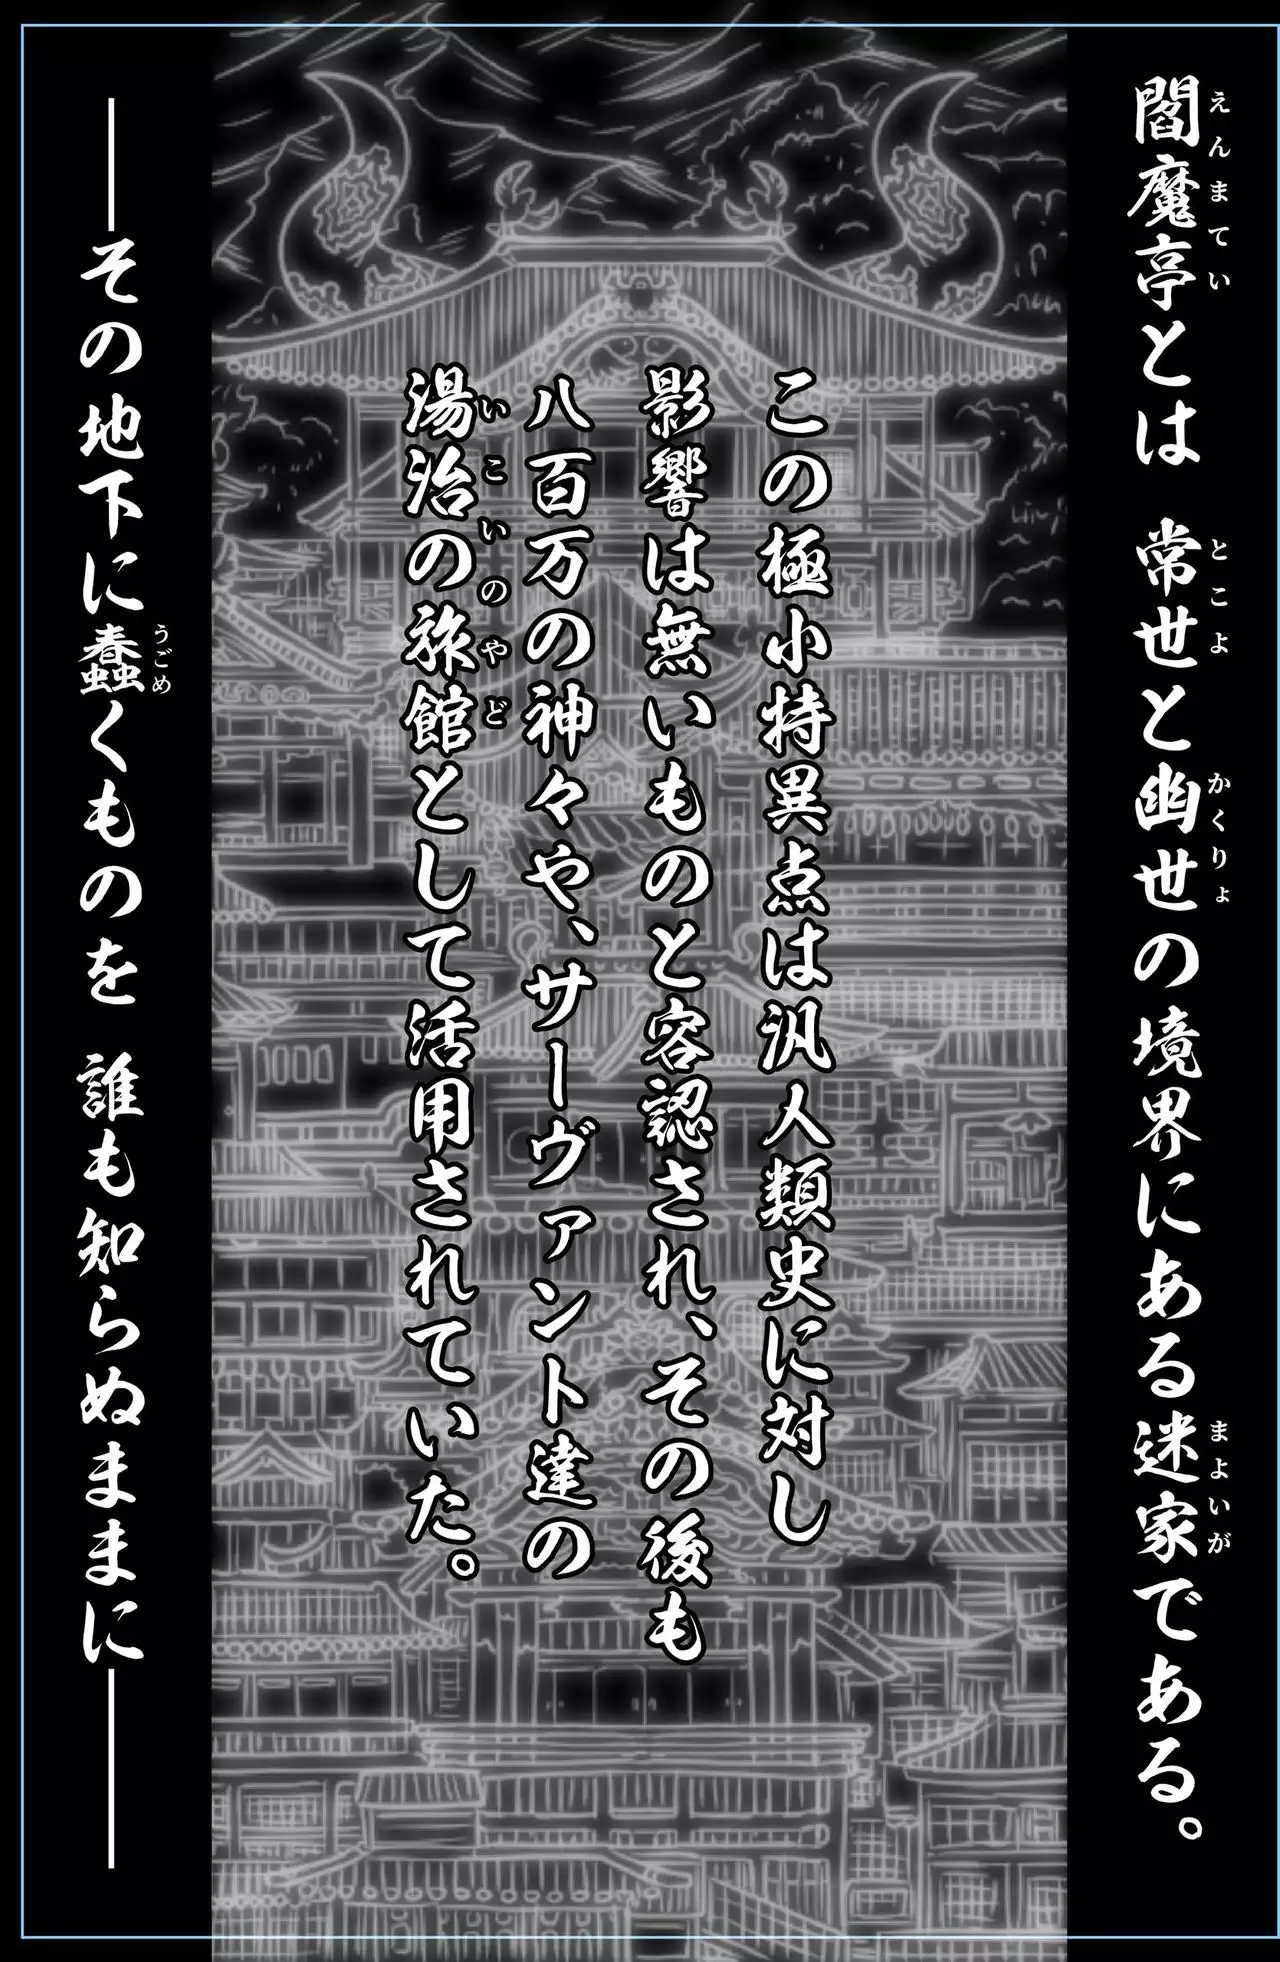 閻魔亭とは 常世と幽世の境界にある迷家である。
えんまてい とこよ かくりょ まよいが
この極小特異点は汎人類史に対し
影響は無いものと容認され、その後も
八百万の神々や、サーヴァント達の
湯治の旅館として活用されていた。
いこいのやど
――その地下に蠢くものを 誰も知らぬままに――
うごめ